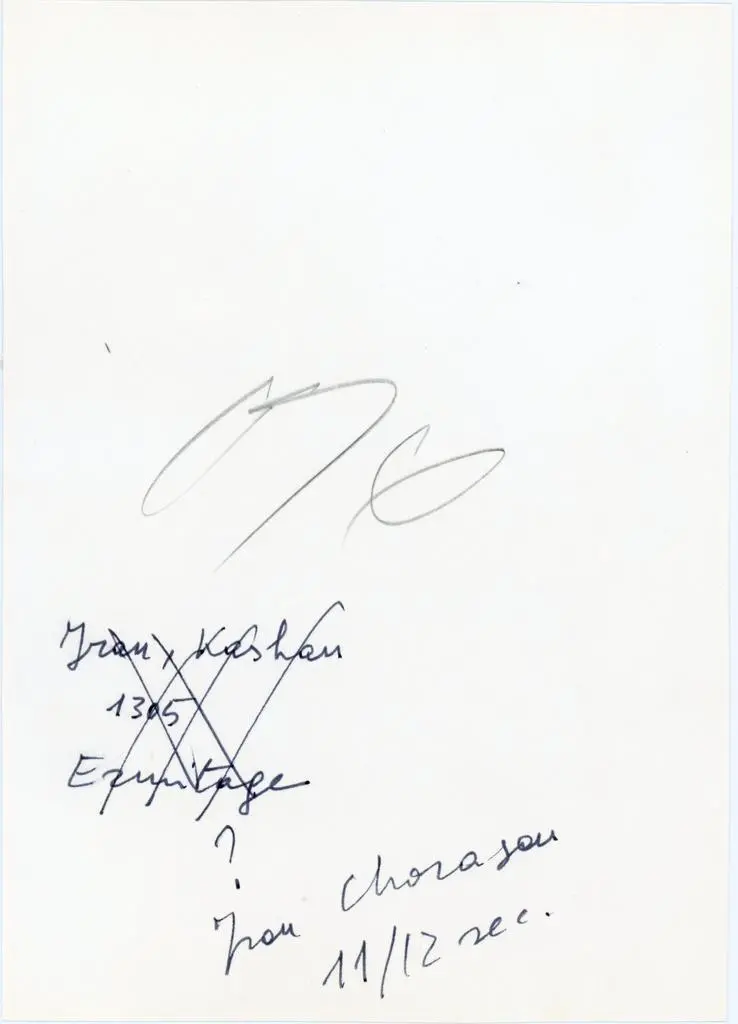 Iran, Kashan
1305
Ermitage
?
Iran Chorasan
11/12 sec.